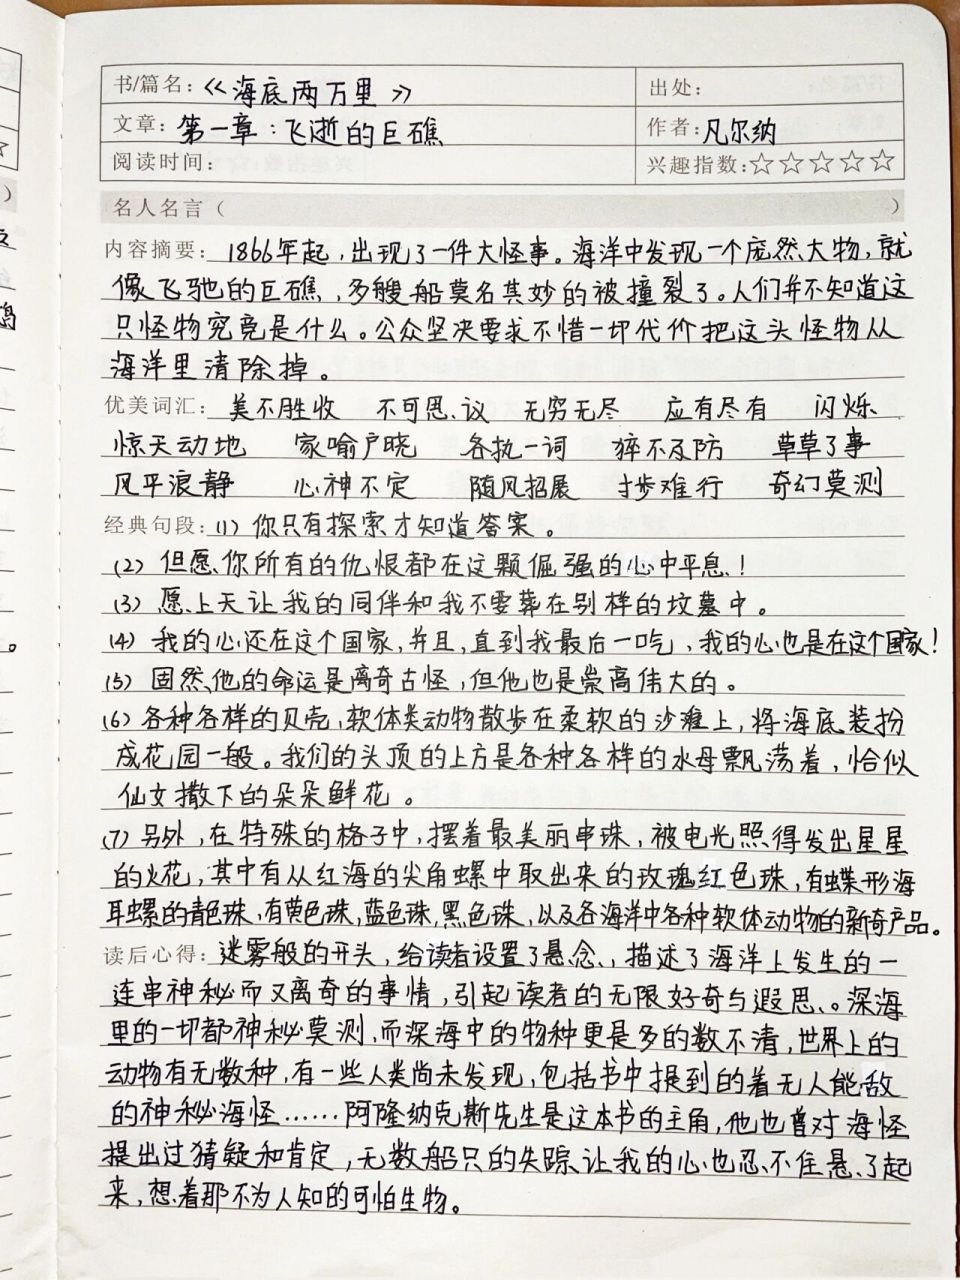 书/篇名：《海底两万里》 出处：
文章：第一章：飞逝的巨礁 作者：凡尔纳
阅读时间： 兴趣指数：☆☆☆☆☆
名人名言（ ）
内容摘要：1866年起，出现了一件大怪事。海洋中发现一个庞然大物，就
像飞驰的巨礁，多艘船莫名其妙的被撞裂了。人们并不知道这
只怪物究竟是什么。公众坚决要求不惜一切代价把这头怪物从
海洋里清除掉。
优美词汇：美不胜收 不可思议 无穷无尽 应有尽有 闪烁
惊天动地 家喻户晓 各执一词 猝不及防 草草了事
风平浪静 心神不定 随风招展 寸步难行 奇幻莫测
经典句段：(1) 你只有探索才知道答案。
(2) 但愿你所有的仇恨都在这颗倔强的心中平息！
(3) 愿上天让我的同伴和我不要葬在别样的坟墓中。
(4) 我的心还在这个国家，并且，直到我最后一吃，我的心也是在这个国家！
(5) 固然他的命运是离奇古怪，但他也是崇高伟大的。
(6) 各种各样的贝壳，软体类动物散步在柔软的沙滩上，将海底装扮
成花园一般。我们的头顶的上方是各种各样的水母飘荡着，恰似
仙女撒下的朵朵鲜花。
(7) 另外，在特殊的格子中，摆着最美丽串珠，被电光照得发出星星
的火花，其中有从红海的尖角螺中取出来的玫瑰红色珠，有蝶形海
耳螺的青色珠，有黄色珠，蓝色珠，黑色珠，以及各海洋中各种软体动物的新奇产品。
读后心得：迷雾般的开头，给读者设置了悬念，描述了海洋上发生的一
连串神秘而又离奇的事情，引起读者的无限好奇与遐思。深海
里的一切都神秘莫测，而深海中的物种更是多的数不清，世界上的
动物有无数种，有一些人类尚未发现，包括书中提到的着无人能敌
的神秘海怪……阿隆纳克斯先生是这本书的主角，他也曾对海怪
提出过猜疑和肯定，无数船只的失踪让我的心也忍不住悬了起
来，想着那不为人知的可怕生物。